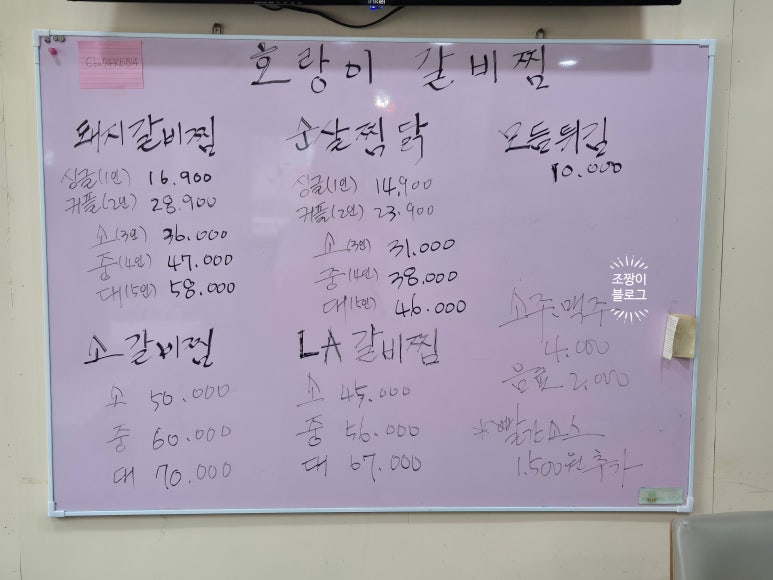 호랑이 갈비찜
돼지갈비찜
싱글(1인) 16.900
커플(2인) 28.900
소(3인) 36.000
중(4인) 47.000
대(5인) 58.000
순살찜닭
싱글(1인) 14,900
커플(2인) 23.900
소(3인) 31.000
중(4인) 38.000
대(5인) 46.000
모듬튀김
10.000
소갈비찜
소 50.000
중 60.000
대 70.000
LA갈비찜
소 45.000
중 56.000
대 67.000
소주.맥주
4.000
음료 2.000
*빨간소스
1.500원추가
조짱이
블로그